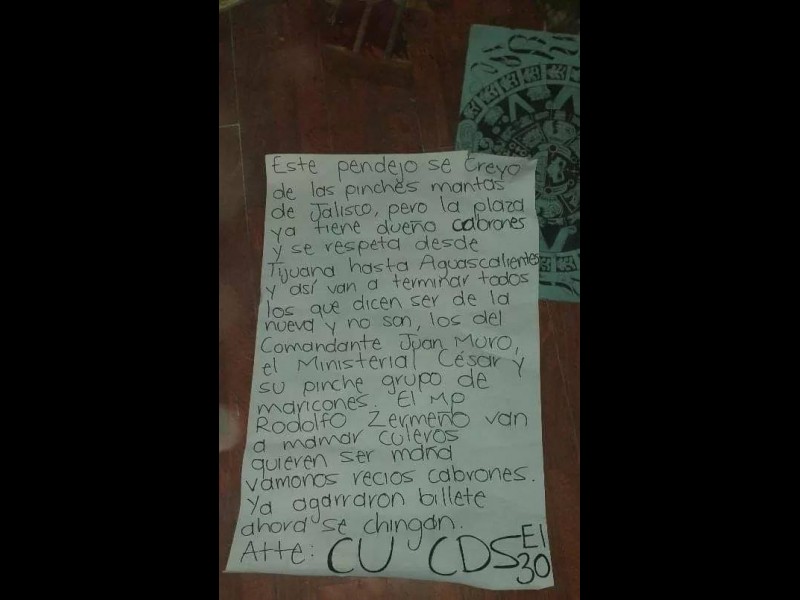 Este pendejo se Creyo
de las pinches mantas
de Jalisco, pero la plaza
ya tiene dueño cabrones
y se respeta desde
Tijuana hasta Aguascalientes
y así van a terminar todos
los que dicen ser de la
nueva y no son, los del
Comandante Juan Muro,
el Ministerial César y
su pinche grupo de
maricones. El MP
Rodolfo Zermeño van
a mamar culeros
quieren ser maña
vamonos recios cabrones.
Ya agarraron billete
ahora se chingan.
Atte: CU CDS El 30